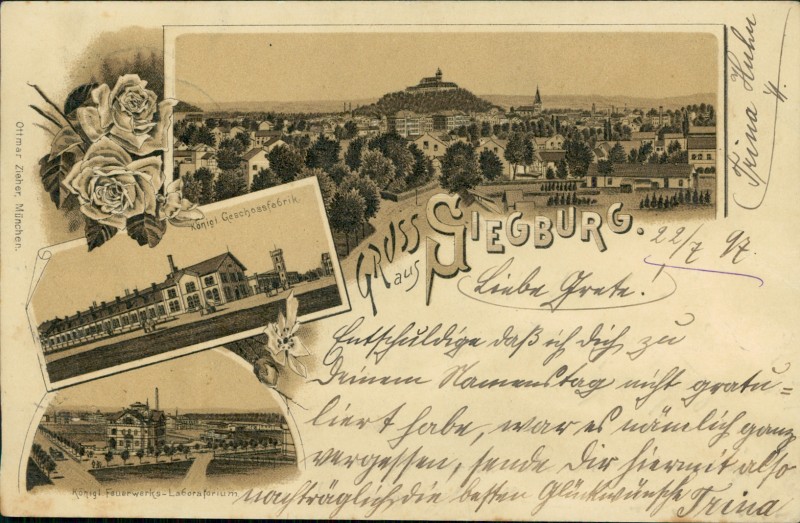 Ottmar Zieher, München.
Königl. Geschossfabrik.
GRUSS
aus
SIEGBURG.
Königl. Feuerwerks-Laboratorium
22/7 97.
Liebe Grete!
Entschuldige daß ich Dich zu
Deinem Namenstag nicht gratu=
liert habe, war es nämlich ganz
vergessen, sende Dir hiermit also
nachträglich die besten Glückwünsche Trina
Trina